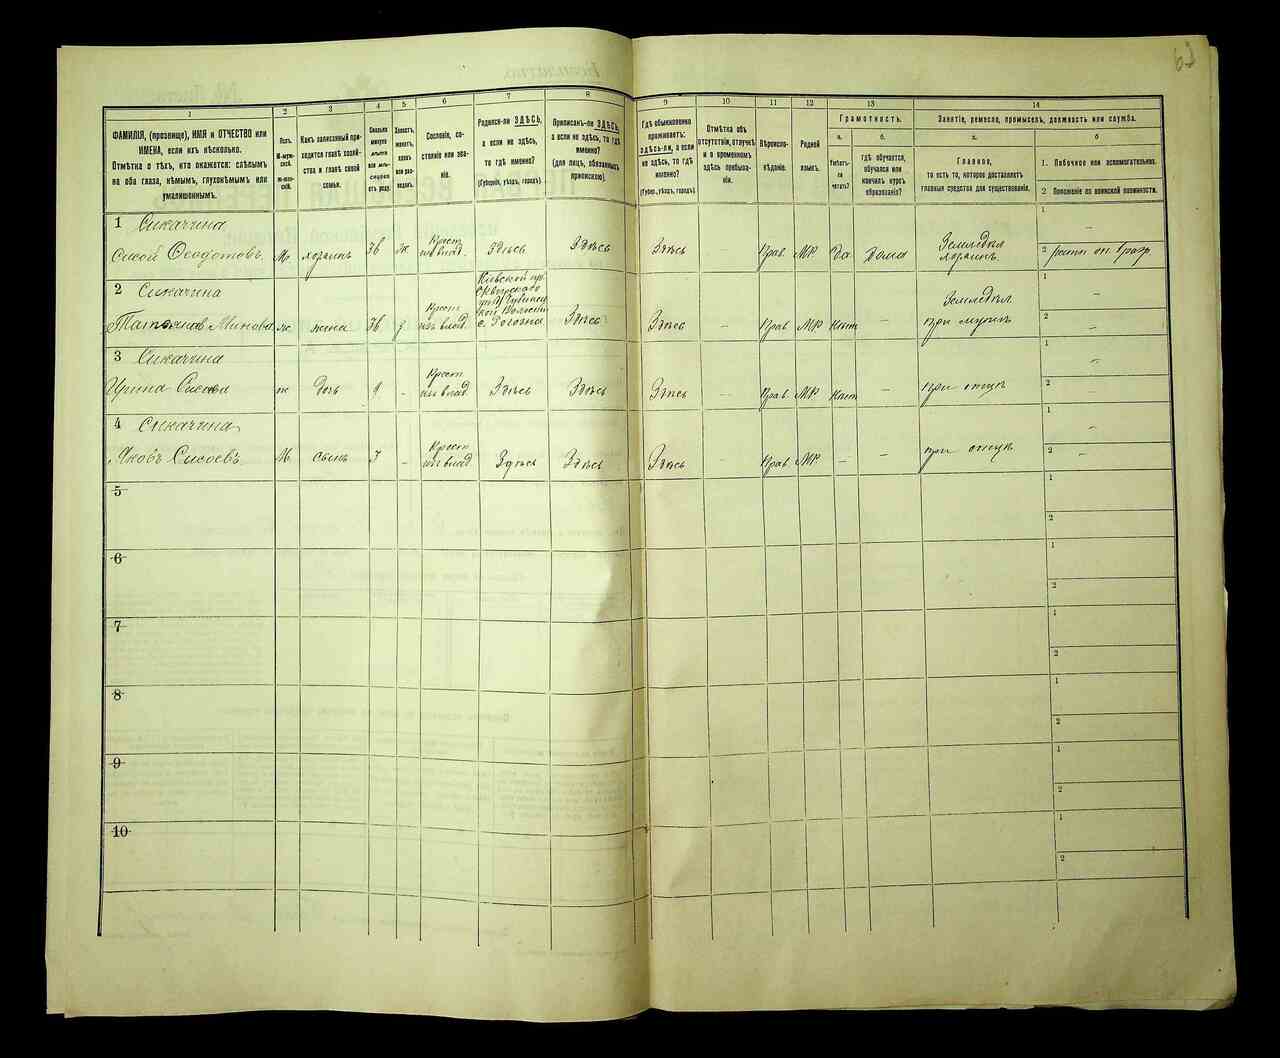 62
1
2
3
4
5
6
7
8
9
10
11
12
13
14
ФАМИЛІЯ, (прозвище), ИМЯ и ОТЧЕСТВО или
ИМЕНА, если ихъ нѣсколько.
Отмѣтка о тѣхъ, кто окажется: слѣпымъ
на оба глаза, нѣмымъ, глухонѣмымъ или
умалишоннымъ.
Полъ.
М-муж-
ской.
Ж-жен-
скій.
Какъ записанный при-
ходится главѣ хозяй-
ства и главѣ своей
семьи.
Сколько
минуло
лѣтъ
или мѣ-
сяцевъ
отъ роду.
Холостъ,
женатъ,
вдовъ
или раз-
веденъ.
Сословіе, со-
стояніе или зва-
ніе.
Родился-ли ЗДѢСЬ,
а если не здѣсь,
то гдѣ именно?
(Губернія, уѣздъ, городъ).
Приписанъ-ли ЗДѢСЬ,
а если не здѣсь, то гдѣ
именно?
(для лицъ, обязанныхъ
припискою).
Гдѣ обыкновенно
проживаетъ:
здѣсь-ли, а если
не здѣсь, то гдѣ
именно?
(Губер., уѣздъ, городъ).
Отмѣтка объ
отсутствіи, отлучкѣ
и о временномъ
здѣсь пребыва-
ніи.
Вѣроиспо-
вѣданіе.
Родной
языкъ.
Грамотность.
а.
Умѣетъ-
ли
читать?
б.
гдѣ обучается,
обучался или
кончилъ курсъ
образованія?
Занятіе, ремесло, промыселъ, должность или служба.
а.
Главное,
то есть то, которое доставляетъ
главныя средства для существованія.
б
1. Побочное или вспомогательное.
2 Положеніе по воинской повинности.
1 Сикачина
Сисой Ѳеодотовъ м. хозяинъ 36 ж. Крест. из влад. Здѣсь Здѣсь Здѣсь – Прав. МР Да Дома Земледѣл. хозяинъ. 1 – 2
2 Сикачина
Татьяна Минова ж жена 36 з Крест. изъ влад. Кіевской гу. Сквирскаго с. Рогозна Здѣсь Здѣсь – Прав МР – Земледѣл. при мужѣ 1 – 2 –
3 Сикачина
Ирина Сисоева ж Дочь 9 – Крест. изъ влад. Здѣсь Здѣсь Здѣсь – Прав. МР – при отцѣ 1 – 2 –
4 Сикачина
Яковъ Сысоевъ м. сынъ 3 – Крест. изъ влад Здѣсь Здѣсь Здѣсь – Прав МР – – при отцѣ 1 – 2 –
5 1 2
6 1 2
7 1 2
8 1 2
9 1 2
10 1 2